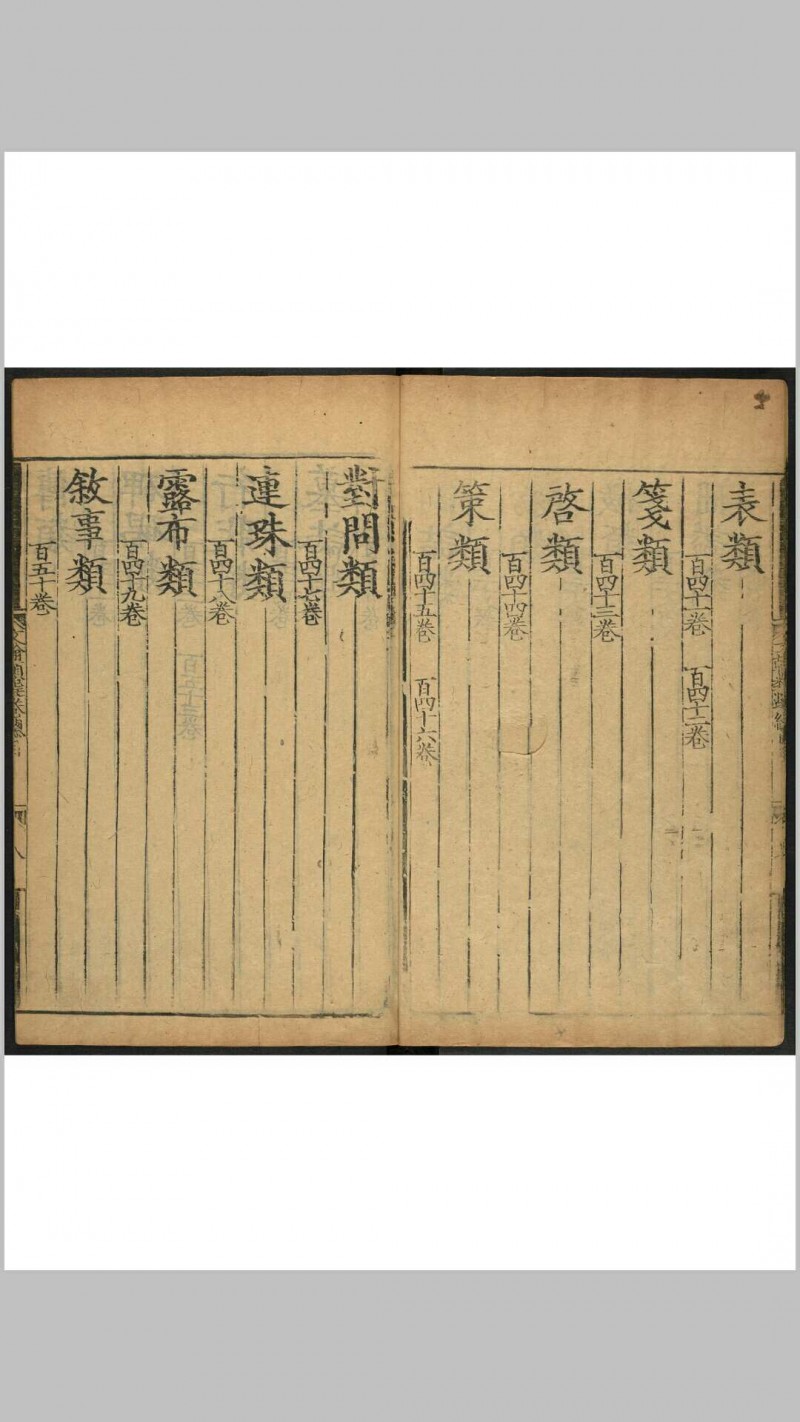 表類
百四十一卷 百四十二卷
箋類
百四十三卷
啓類
百四十四卷
策類
百四十五卷 百四十六卷
對問類
百四十七卷
連珠類
百四十八卷
露布類
百四十九卷
敘事類
百五十卷
八